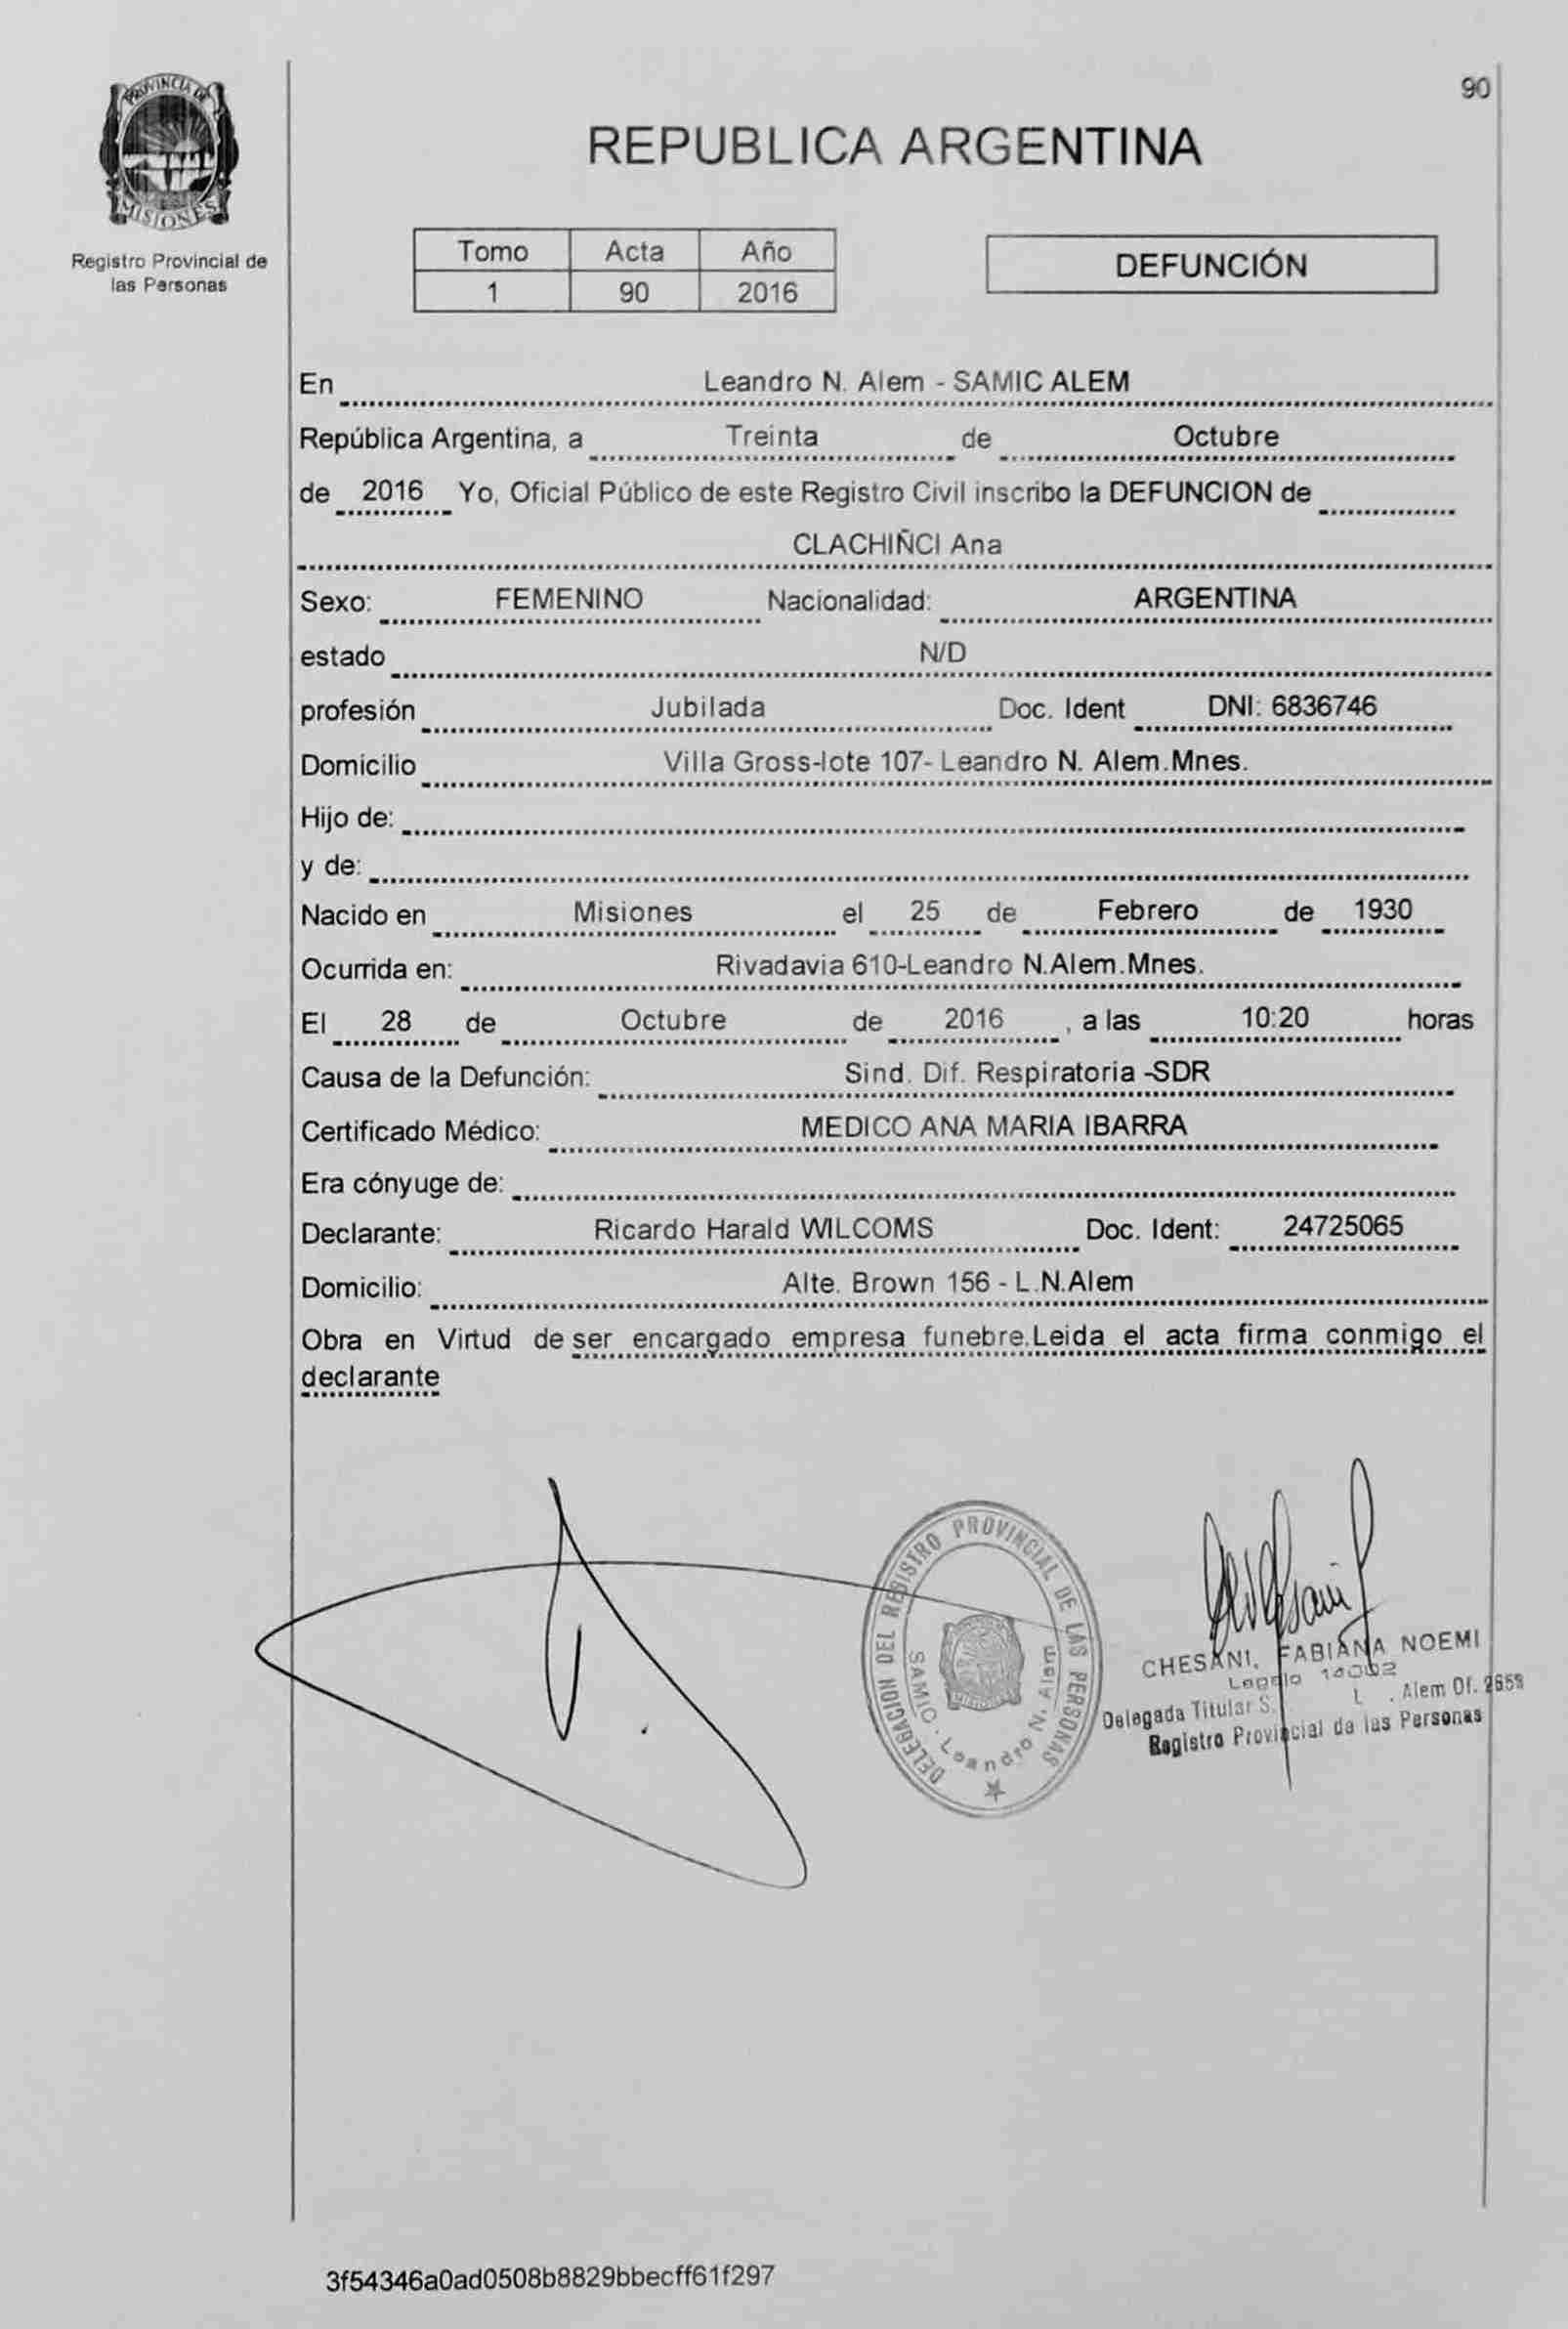 90
PROVINCIA DE
MISIONES
Registro Provincial de
las Personas
REPUBLICA ARGENTINA
Tomo Acta Año
1 90 2016
DEFUNCIÓN
En Leandro N. Alem - SAMIC ALEM
República Argentina, a Treinta de Octubre
de 2016 Yo, Oficial Público de este Registro Civil inscribo la DEFUNCION de
CLACHIÑCI Ana
Sexo: FEMENINO Nacionalidad: ARGENTINA
estado N/D
profesión Jubilada Doc. Ident DNI: 6836746
Domicilio Villa Gross-lote 107- Leandro N. Alem.Mnes.
Hijo de:
y de:
Nacido en Misiones el 25 de Febrero de 1930
Ocurrida en: Rivadavia 610-Leandro N.Alem.Mnes.
El 28 de Octubre de 2016 , a las 10:20 horas
Causa de la Defunción: Sind. Dif. Respiratoria -SDR
Certificado Médico: MEDICO ANA MARIA IBARRA
Era cónyuge de:
Declarante: Ricardo Harald WILCOMS Doc. Ident: 24725065
Domicilio: Alte. Brown 156 - L.N.Alem
Obra en Virtud de ser encargado empresa funebre.Leida el acta firma conmigo el
declarante
DELEGACION DEL REGISTRO PROVINCIAL DE LAS PERSONAS
SAMIC . Leandro N. Alem
CHESANI, FABIANA NOEMI
Legajo
Delegada Titular S. Alem Of.
Registro Provincial de las Personas
3f54346a0ad0508b8829bbecff61f297